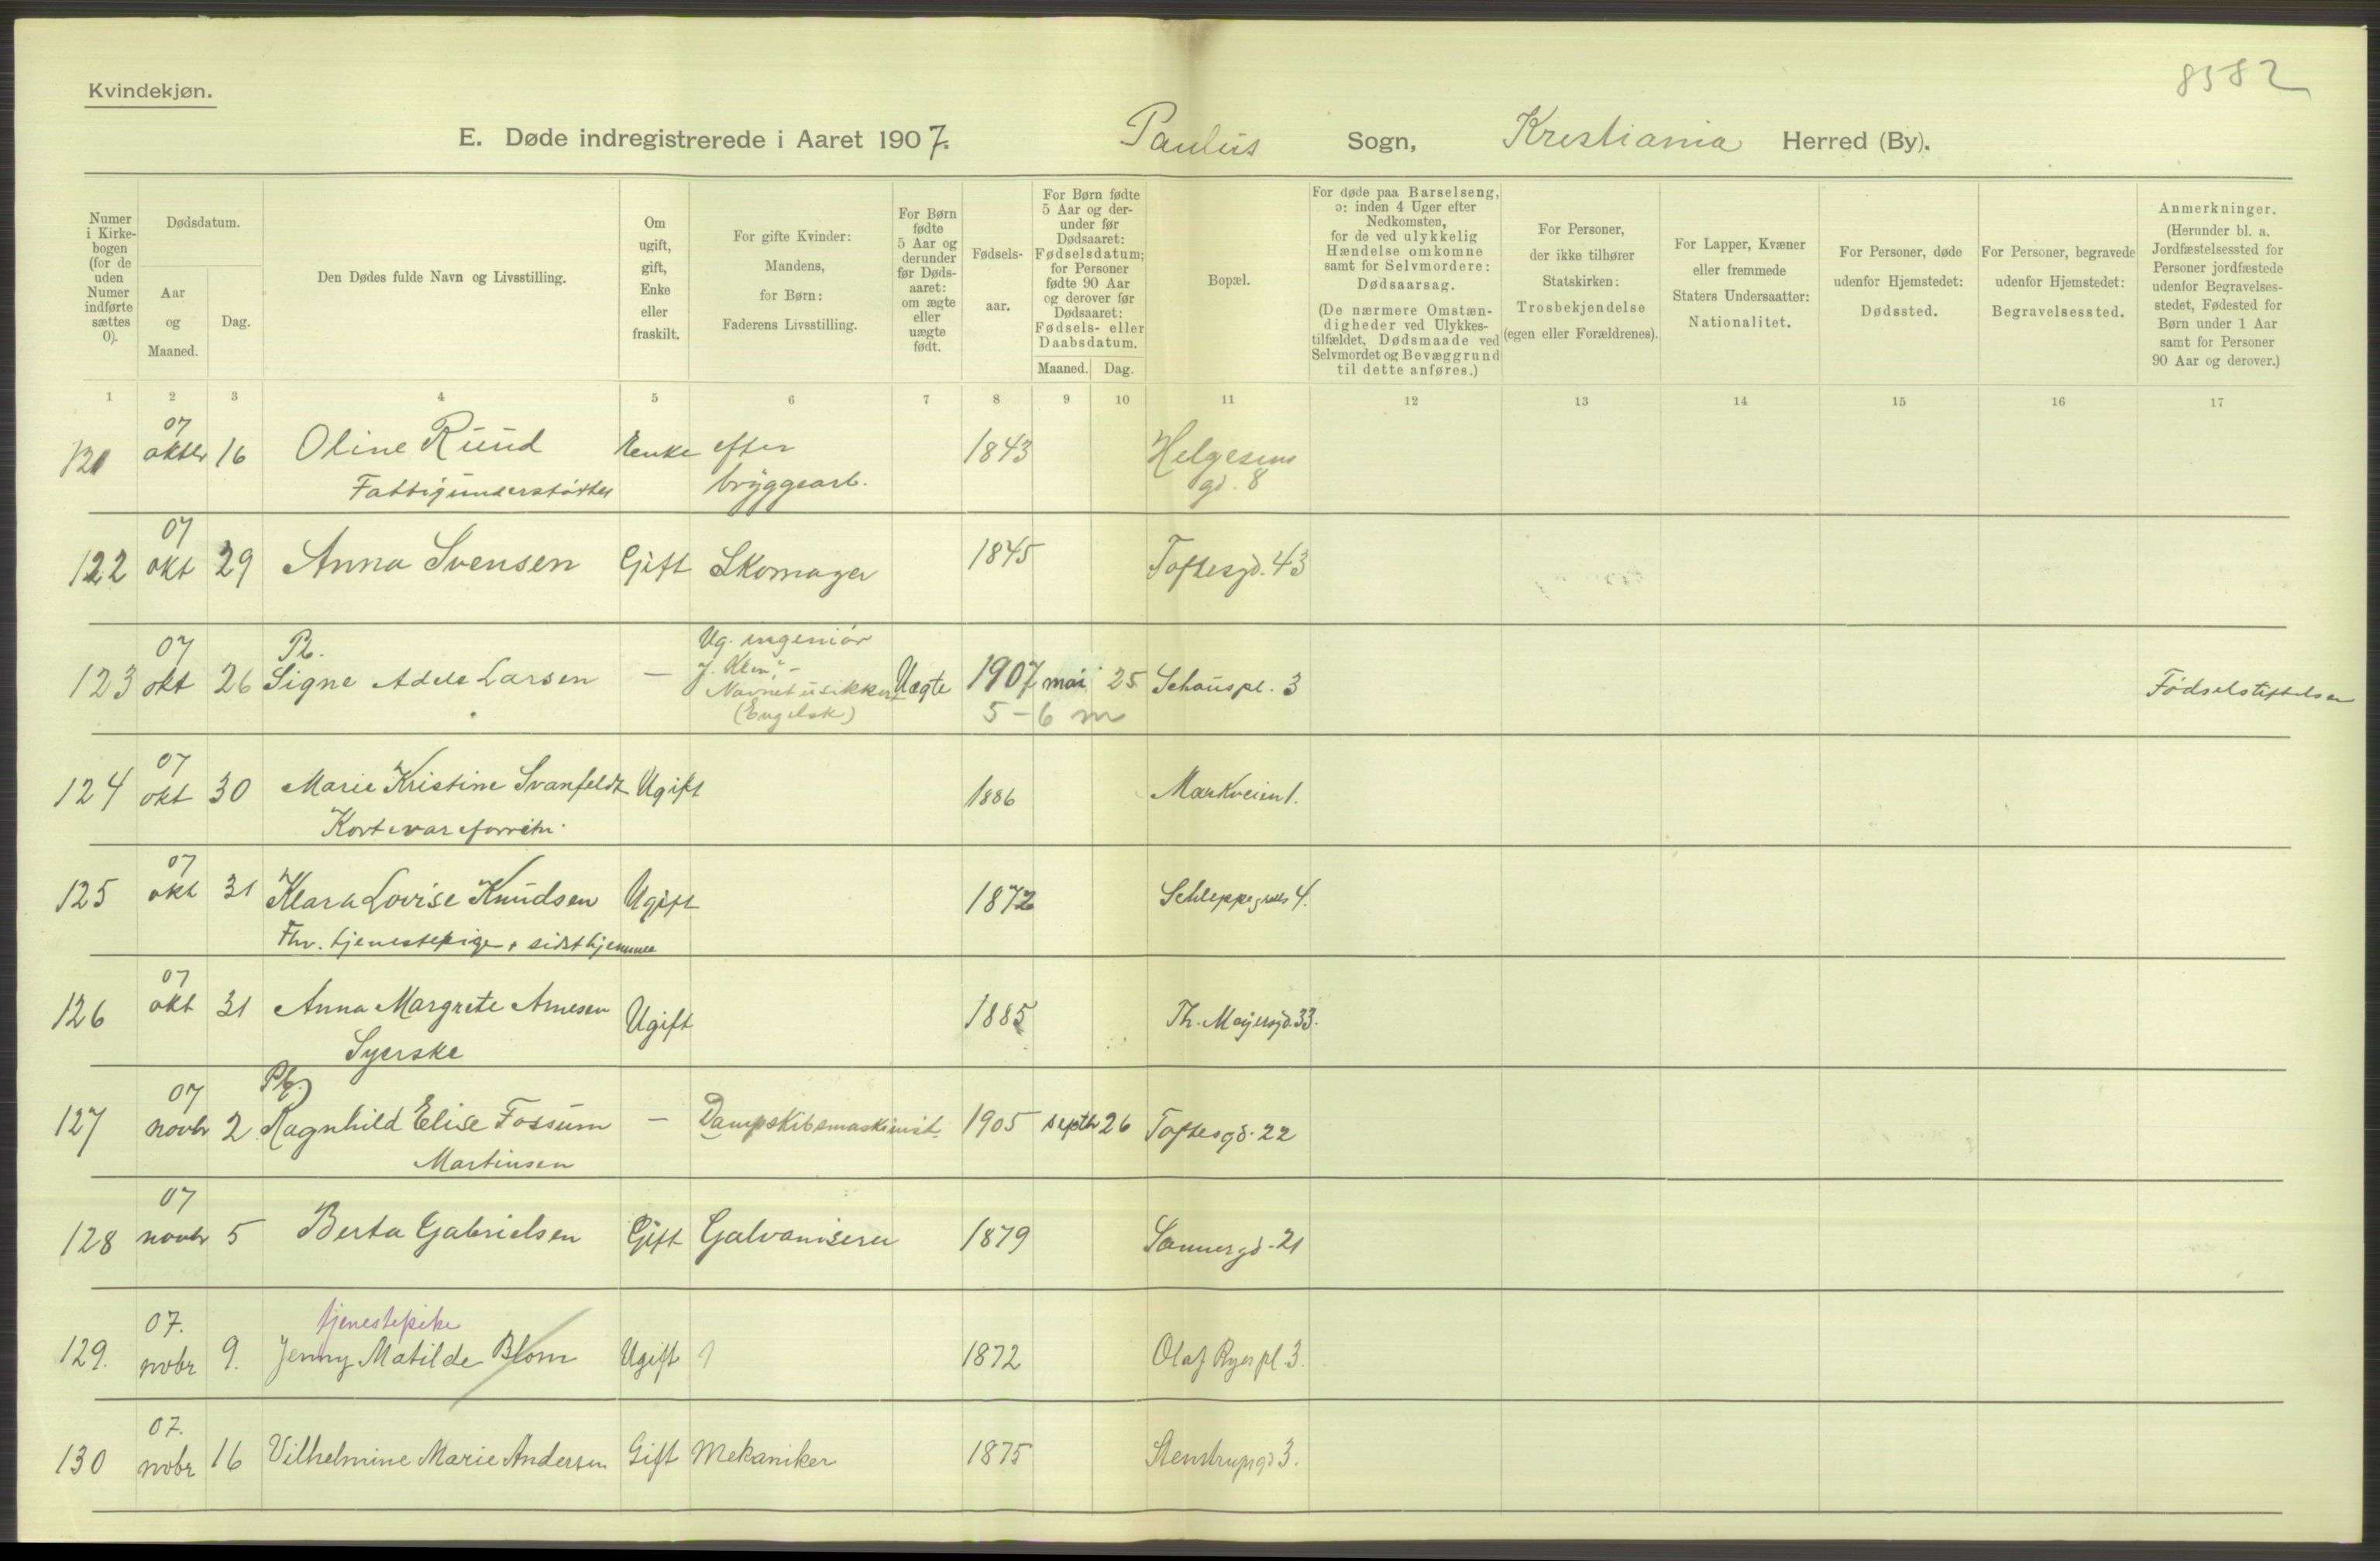 8582
Kvindekjøn.
E. Døde indregistrerede i Aaret 1907. Paulus Sogn, Kristiania Herred (By).
Numer i Kirkebogen (for de uden Numer indførte sættes 0).
Dødsdatum.
Aar og Maaned.
Dag.
Den Dødes fulde Navn og Livsstilling.
Om ugift, gift, Enke eller fraskilt.
For gifte Kvinder: Mandens, for Børn: Faderens Livsstilling.
For Børn fødte 5 Aar og derunder før Dødsaaret: om ægte eller uægte født.
Fødselsaar.
For Børn fødte 5 Aar og derunder før Dødsaaret: Fødselsdatum; for Personer fødte 90 Aar og derover før Dødsaaret: Fødsels- eller Daabsdatum.
Maaned. Dag.
Bopæl.
For døde paa Barselseng, ɔ: inden 4 Uger efter Nedkomsten, for de ved ulykkelig Hændelse omkomne samt for Selvmordere: Dødsaarsag.
(De nærmere Omstændigheder ved Ulykkestilfældet, Dødsmaade ved Selvmordet og Bevæggrund til dette anføres.)
For Personer, der ikke tilhører Statskirken: Trosbekjendelse (egen eller Forældrenes).
For Lapper, Kvæner eller fremmede Staters Undersaatter: Nationalitet.
For Personer, døde udenfor Hjemstedet: Dødssted.
For Personer, begravede udenfor Hjemstedet: Begravelsessted.
Anmerkninger. (Herunder bl. a. Jordfæstelsessted for Personer jordfæstede udenfor Begravelsesstedet, Fødested for Børn under 1 Aar samt for Personer 90 Aar og derover.)
1 2 3 4 5 6 7 8 9 10 11 12 13 14 15 16 17
07
121 oktbr 16 Oline Ruud Enke efter 1843 Helgesens
Fattigunderstøttet bryggearb. gd. 8
07
122 okt 29 Anna Svensen Gift Skomager 1845 Toftesgd. 43
07 Pb. Ug. ingeniør
123 okt 26 Signe Adele Larsen — Uægte 1907 mai 25 Schouspl. 3 Fødselstiftelsen
Navnet usikkert
(Engelsk) 5-6 m
07
124 okt 30 Marie Kristine Svanfeldt Ugift 1886 Markveien 1.
Kortevareforretn.
07
125 okt 31 Klara Lovise Knudsen Ugift 1872 Schleppegrells 4.
Fhv. tjenestepige, sidst hjemme
07
126 okt 31 Anna Margrete Arnesen Ugift 1885 Th. Meyersgd. 33.
Syerske
07 Pb.
127 novbr 2 Ragnhild Elise Fossum — Dampskibsmaskinist 1905 septbr 26 Toftesgd. 22
Martinsen
07
128 novbr 5 Berta Gabrielsen Gift Galvaniserer 1879 Sannergd. 21
07. tjenestepike
129. nobr 9. Jenny Matilde Blom Ugift 1872 Olaf Ryes pl 3.
07.
130 nobr 16 Vilhelmine Marie Andersen Gift Mekaniker 1875 Stenstrupsgd 3.